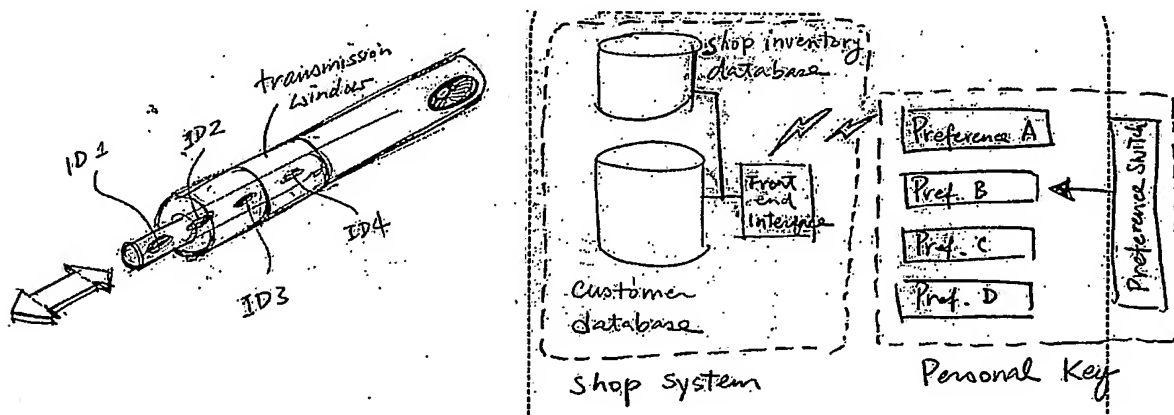 transmission
window
ID1
ID2
ID3
ID4
shop inventory
database
Front
end
interface
customer
database
shop system
Preference A
Pref. B
Pref. C
Pref. D
Preference Switch
Personal Key